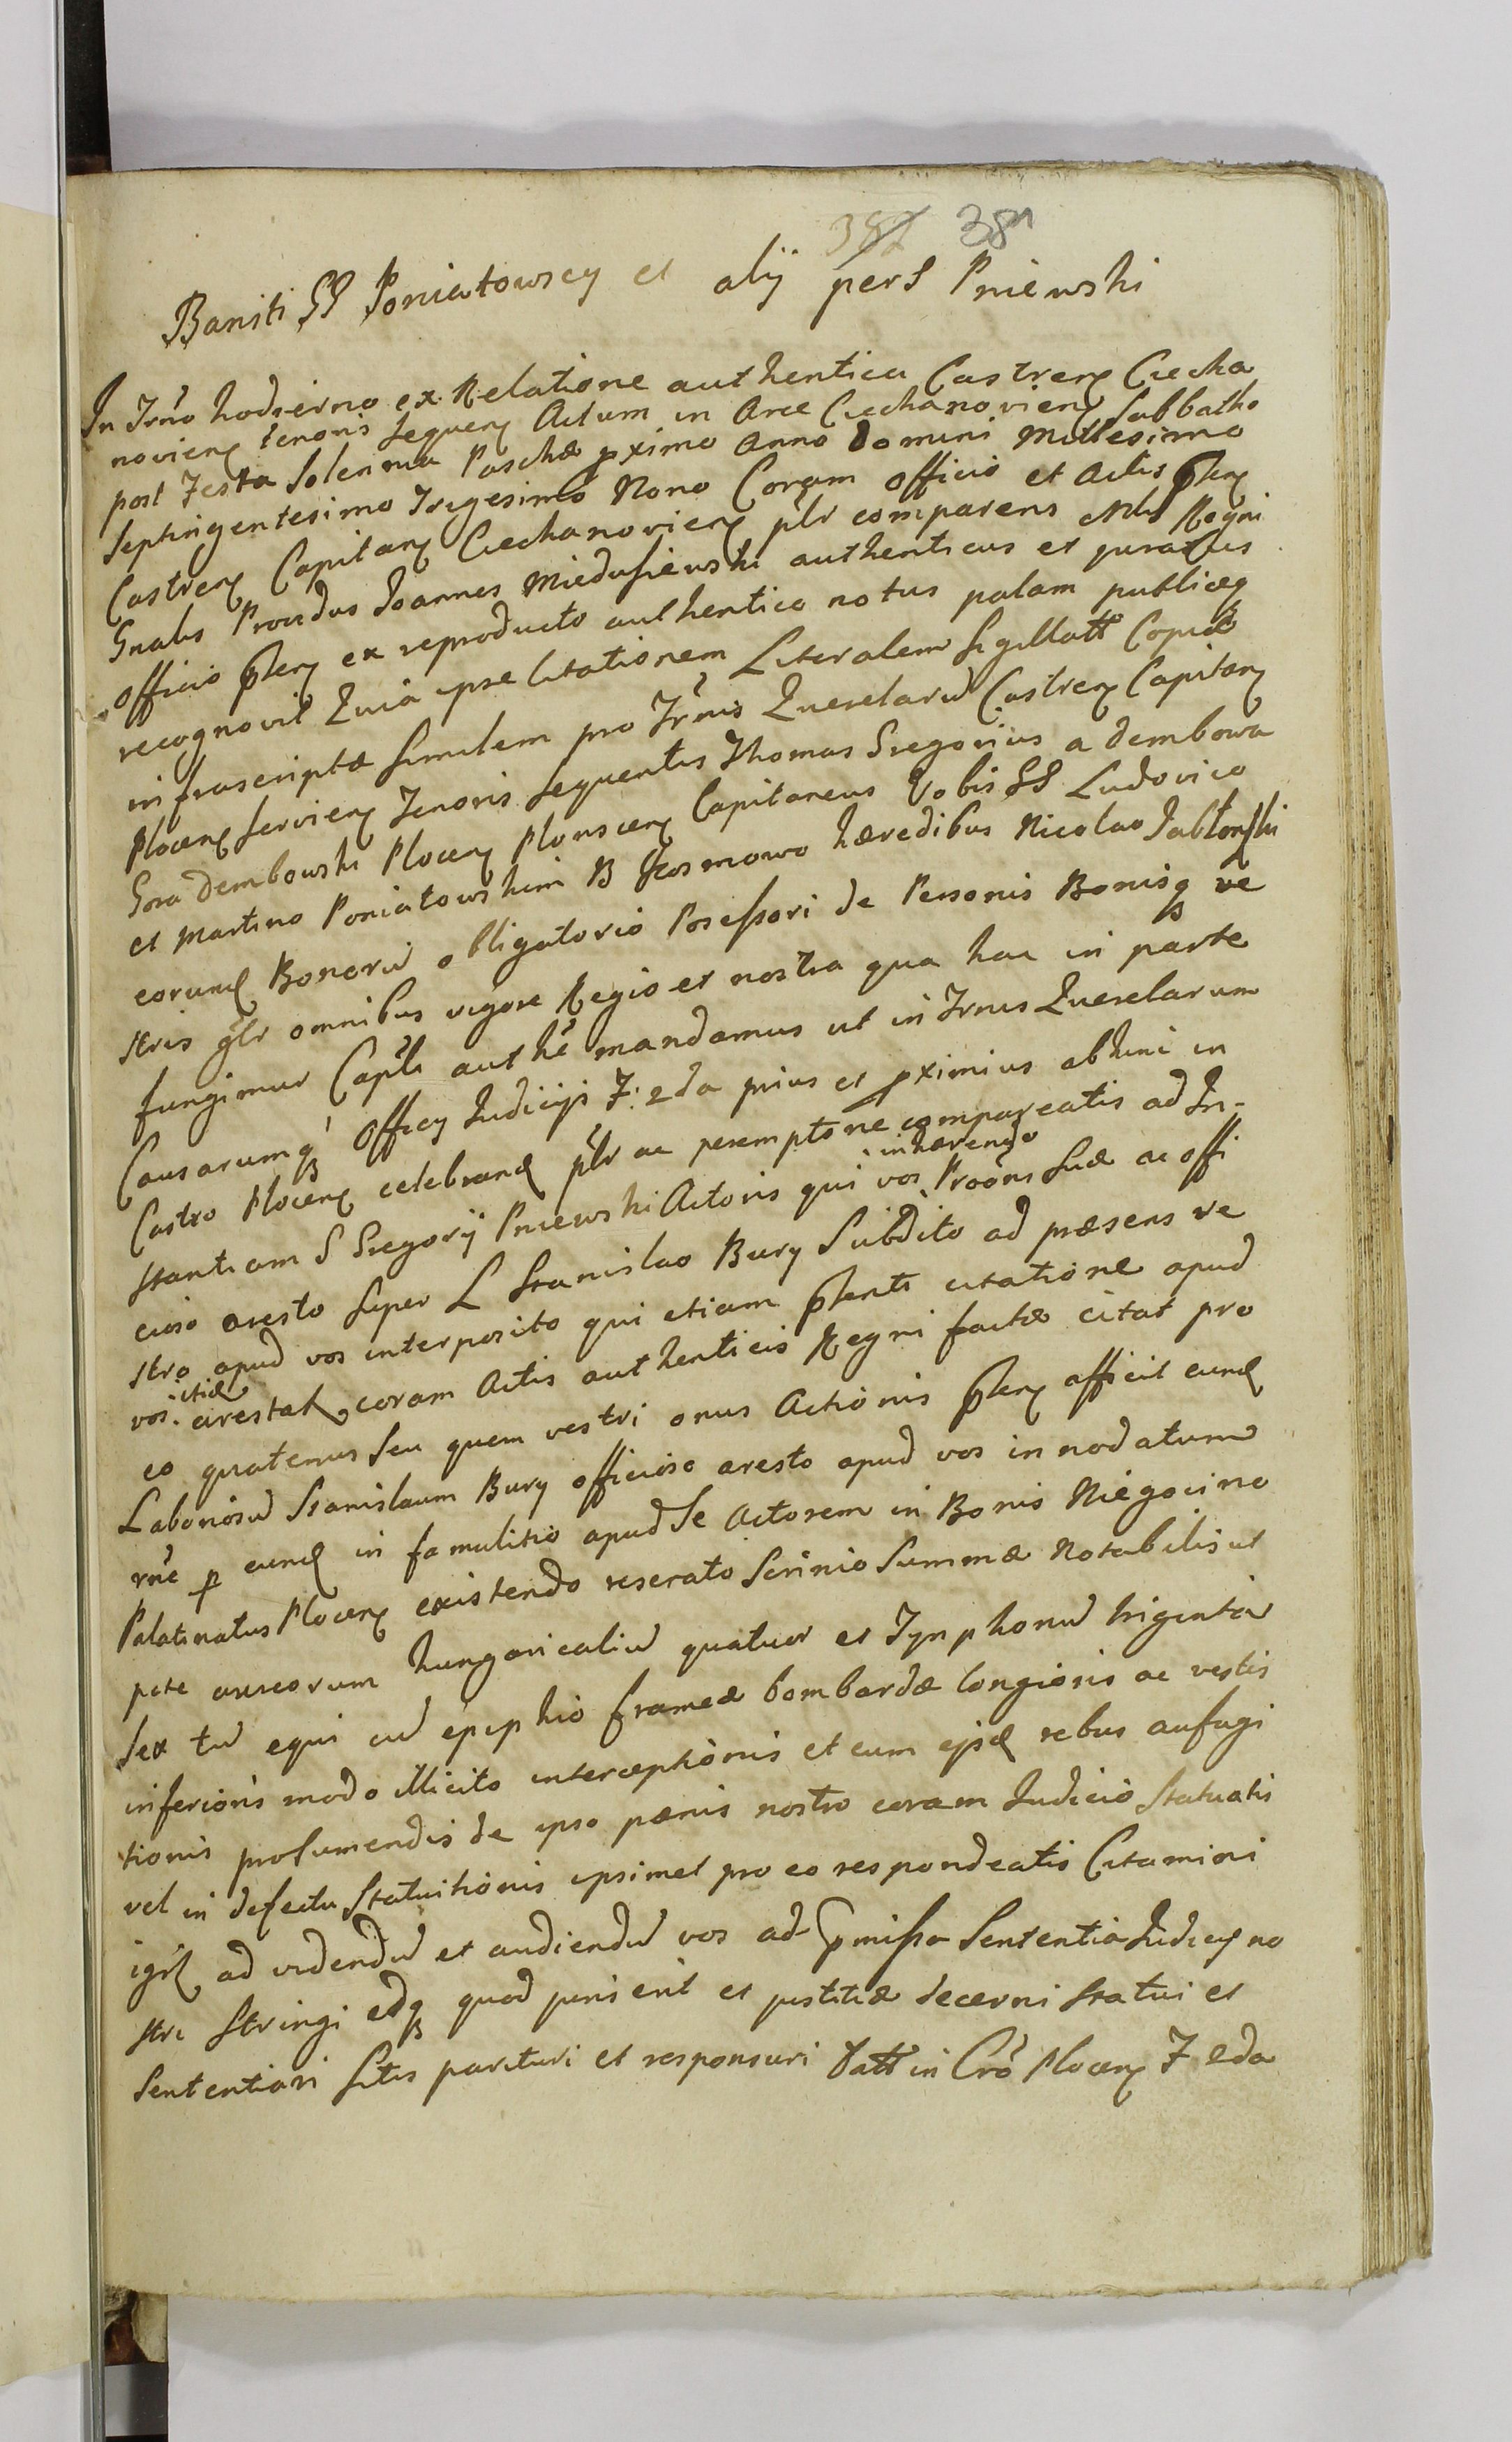 382 381
Baniti SS Poniatowscy et alij per S Pniewski
In Trno hodierno ex Relatione authentica Castren Ciecha
novien tenoris sequen Actum in Arce Ciechanovien Sabbatho
post Festa Solennia Paschæ pximo Anno Domini Millesimo
Septingentesimo Trigesimo Nono Coram Officio et Actis pñten
Castren Capitan Ciechanovien plr comparens Mlis Regni
Gnalis Providus Joannes Miedusiewski authenticus et juratus
Officio pñten ex reproducto authentico notus palam publiceq
recognovit Quia ipse Citationem Literalem Sigillatt Copiæ
infrascriptæ similem pro Trnis Querelarū Castren Capitan
Plocen servien Tenoris sequentis Thomas Gregorius a Dembowa
Gora Dembowski Plocen Plonscen Capitaneus Vobis SS Ludovico
et Martino Poniatowskim B Kosmowo hæredibus Nicolao Jabłonski
eorund Bonorū obligatorio Possessori de Personis Bonisq ve
stris glr omnibus vigore Regio et nostra qua hac in parte
fungimur Capli authē mandamus ut in Trnis Querelarum
Causarumq Officy Judicijs F: 2da prius et pximius abhinc in
Castro Plocen celebrand plr ac peremptorie compareatis ad In-
stantiam S Gregorij Pniewski Actoris qui vos inhærendo Proōni suæ ac offi
cioso aresto super L Stanislao Bury Subdito ad præsens ve
stro apud vos interposito qui etiam pñenti citatione apud
vos itid arestat coram Actis authenticis Regni factæ citat pro
eo quatenus seu quem vestri onus Actionis pñten afficit eund
Laboriosū Stanislaum Bury officioso aresto apud vos innodatum
rñe p eund in famulitio apud Se Actorem in Bonis Niegocino
Palatinatus Plocen existendo reserato Scrinio Summæ Notabilis ut
pote aureorum hungaricaliū quatuor et Tynphonū triginta
sex tū equi cū epiphio frameæ bombardæ longioris ac vestis
inferioris modo illicito interceptionis et cum ejsd rebus aufugi
tionis pro sumendis de ipso pænis nostro coram Judicio statuatis
vel in defectu statuitionis ipsimet pro eo respondeatis Citamini
igr ad videndū et audiendū vos ad pmissa Sententia Judicy no
stri stringi edq quod juris erit et justitiæ decerni statui et
Sententiari sitis parituri et responsuri Datt in Cro Plocen F 2da